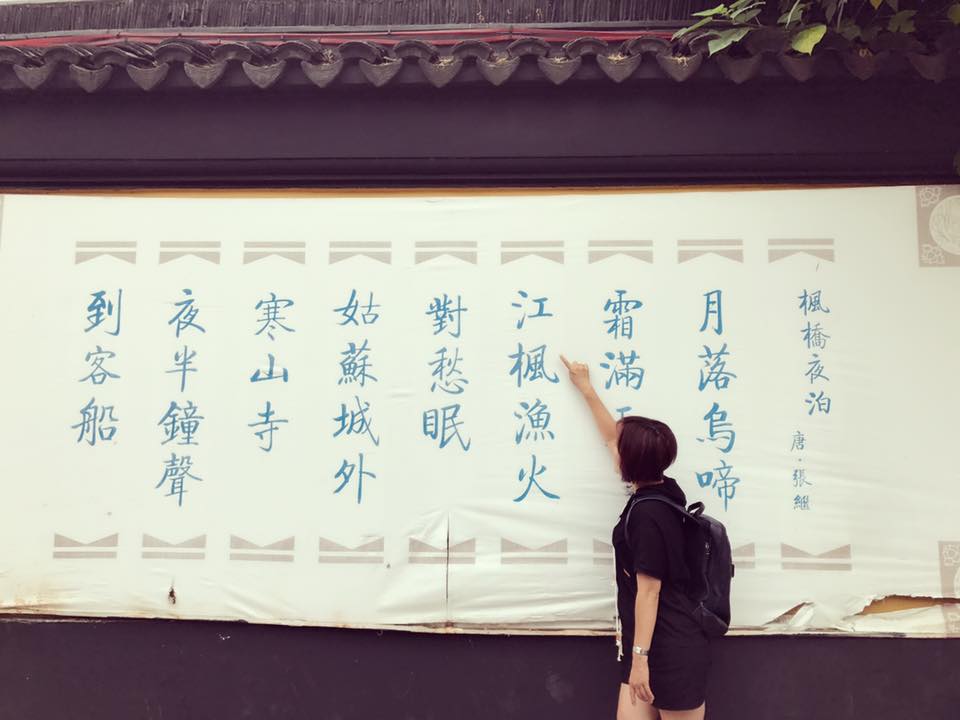 楓橋夜泊 唐·張繼
月落烏啼
霜滿
江楓漁火
對愁眠
姑蘇城外
寒山寺
夜半鐘聲
到客船